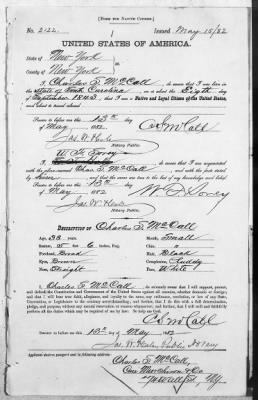 [FORM FOR NATIVE CITIZEN.]
No. 2122. Issued May 15/82
UNITED STATES OF AMERICA.
State of New-York
County of New-York
I, Charles S. McCall, do swear that I was born in
the State of South Carolina, on or about the Eighth day
of September 1843, that I am a Native and Loyal Citizen of the United States,
and about to travel abroad.
Sworn to before me this 13th day
of May 1882. C S McCall
Notary Public.
I, do swear that I am acquainted
with the above-named Chas S. McCall, and with the facts stated
by him and that the same are true to the best of my knowledge and belief.
Sworn to before me this 13th day
of May 1882
Notary Public.
DESCRIPTION OF Charles S. McCall
Age, 38 years Mouth, Small
Stature, 5 ft. 6 inches, Eng. Chin, "
Forehead, Broad Hair, Black
Eyes, Brown Complexion, Ruddy
Nose, Straight Face, White
I, Charles S. McCall do solemnly swear that I will support, protect, and
defend the Constitution and Government of the United States against all enemies, whether domestic or foreign;
and that I will bear true faith, allegiance, and loyalty to the same, any ordinance, resolution, or law of any State,
Convention, or Legislature to the contrary notwithstanding; and further, that I do this with a full determination,
pledge, and purpose, without any mental reservation or evasion whatsoever; and further, that I will well and faithfully
perform all the duties which may be required of me by law: So help me God.
C S McCall
Sworn to before me this 13th day of May 1882
Notary
Applicant desires passport sent to following address:
Charles S. McCall,
Care & Co
NY.